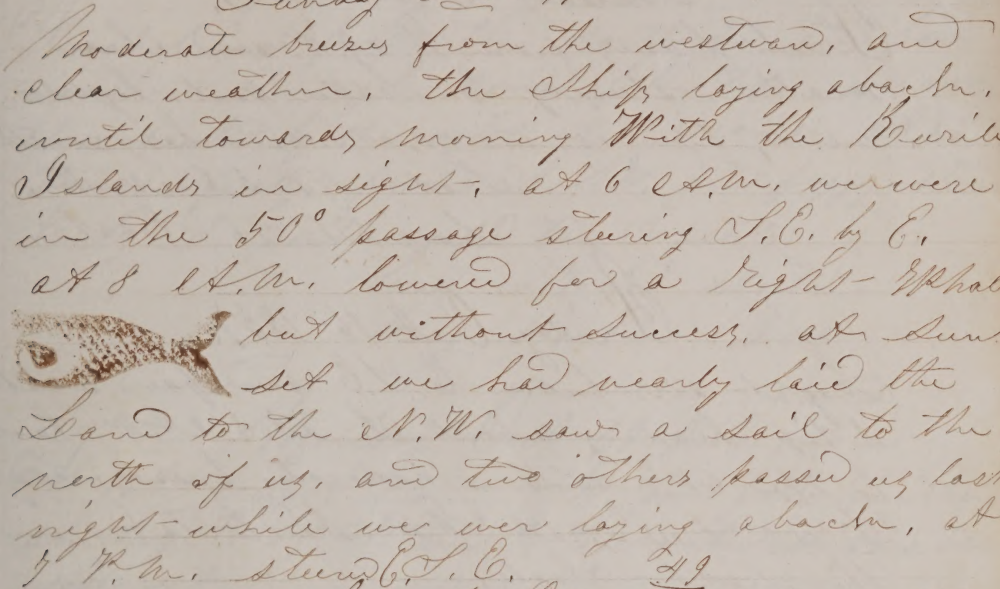 Moderate breezes from the westward, and
clear weather, the Ship laying aback,
until towards morning With the Kuril
Islands in sight, at 6 A.M. wewere
in the 50° passage steering S.E. by E.
at 8 A.M. lowered for a right Whal
but without success, at sun
set we had nearly laid the
Land to the N.W. saw a sail to the
north of us, and two others passed us last
night while we wer laying aback, at
7 P.M. steered E.S.E. 49